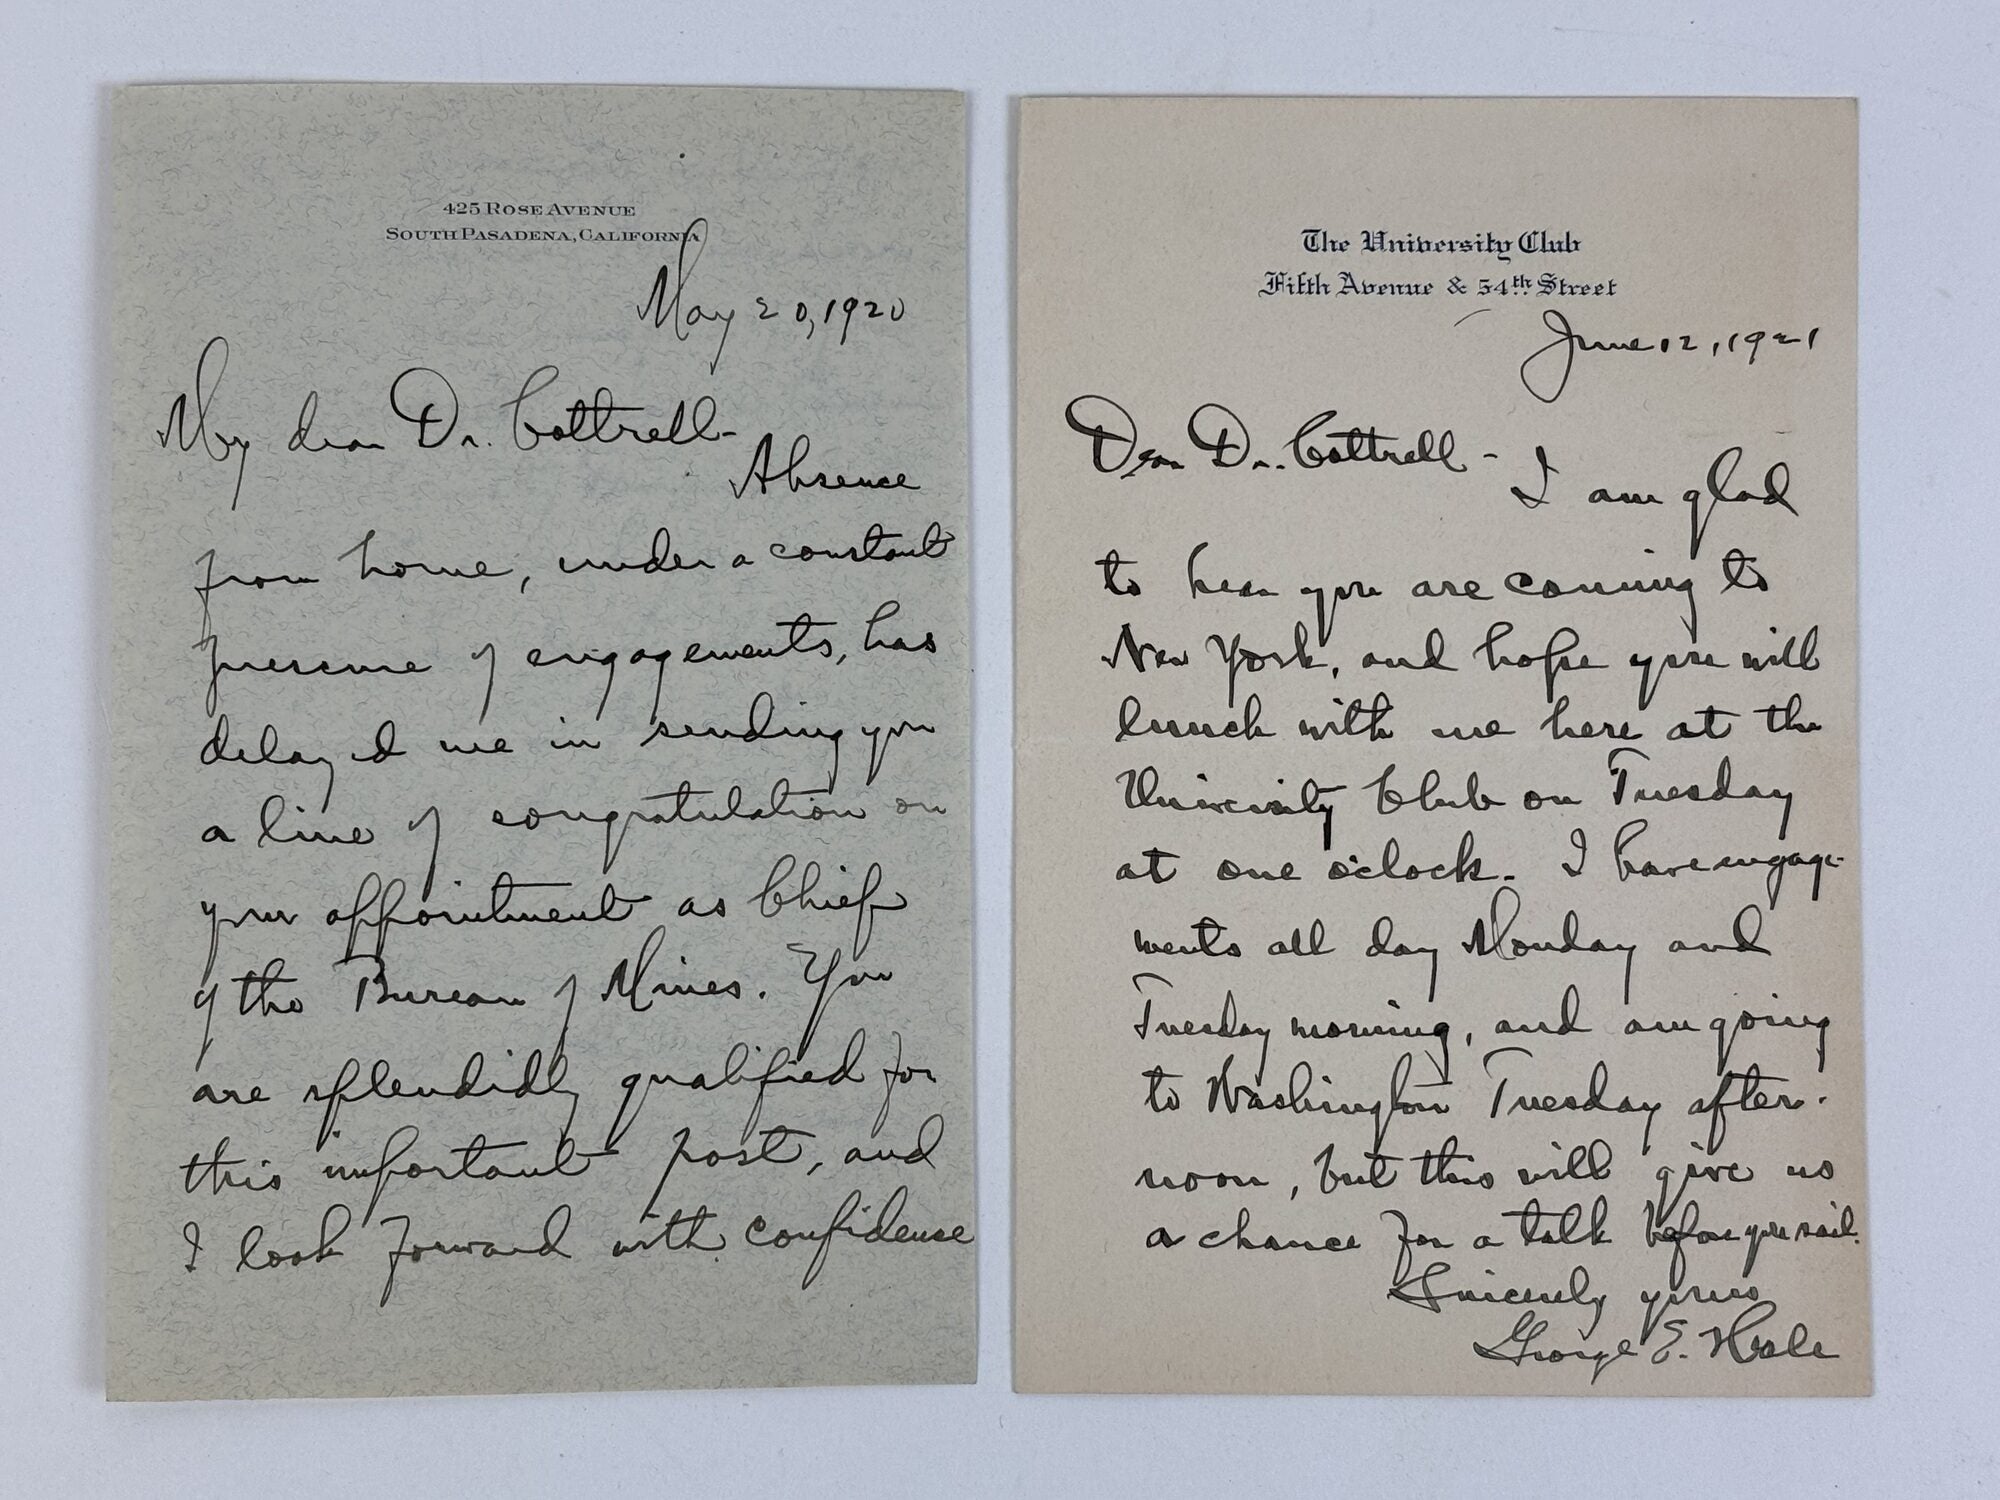 425 ROSE AVENUE
SOUTH PASADENA, CALIFORNIA
May 20, 1920
My dear Dr. Cottrell-
Absence
from home, under a constant
pressure of engagements, has
delayed me in sending you
a line of congratulation on
your appointment as Chief
of the Bureau of Mines. You
are splendidly qualified for
this important post, and
I look forward with confidence
The University Club
Fifth Avenue & 54th Street
June 12, 1921
Dear Dr. Cottrell -
I am glad
to hear you are coming to
New York, and hope you will
lunch with me here at the
University Club on Tuesday
at one o'clock. I have engage-
ments all day Monday and
Tuesday morning, and am going
to Washington Tuesday after-
noon, but this will give us
a chance for a talk before you sail.
Sincerely yours
George E. Hale